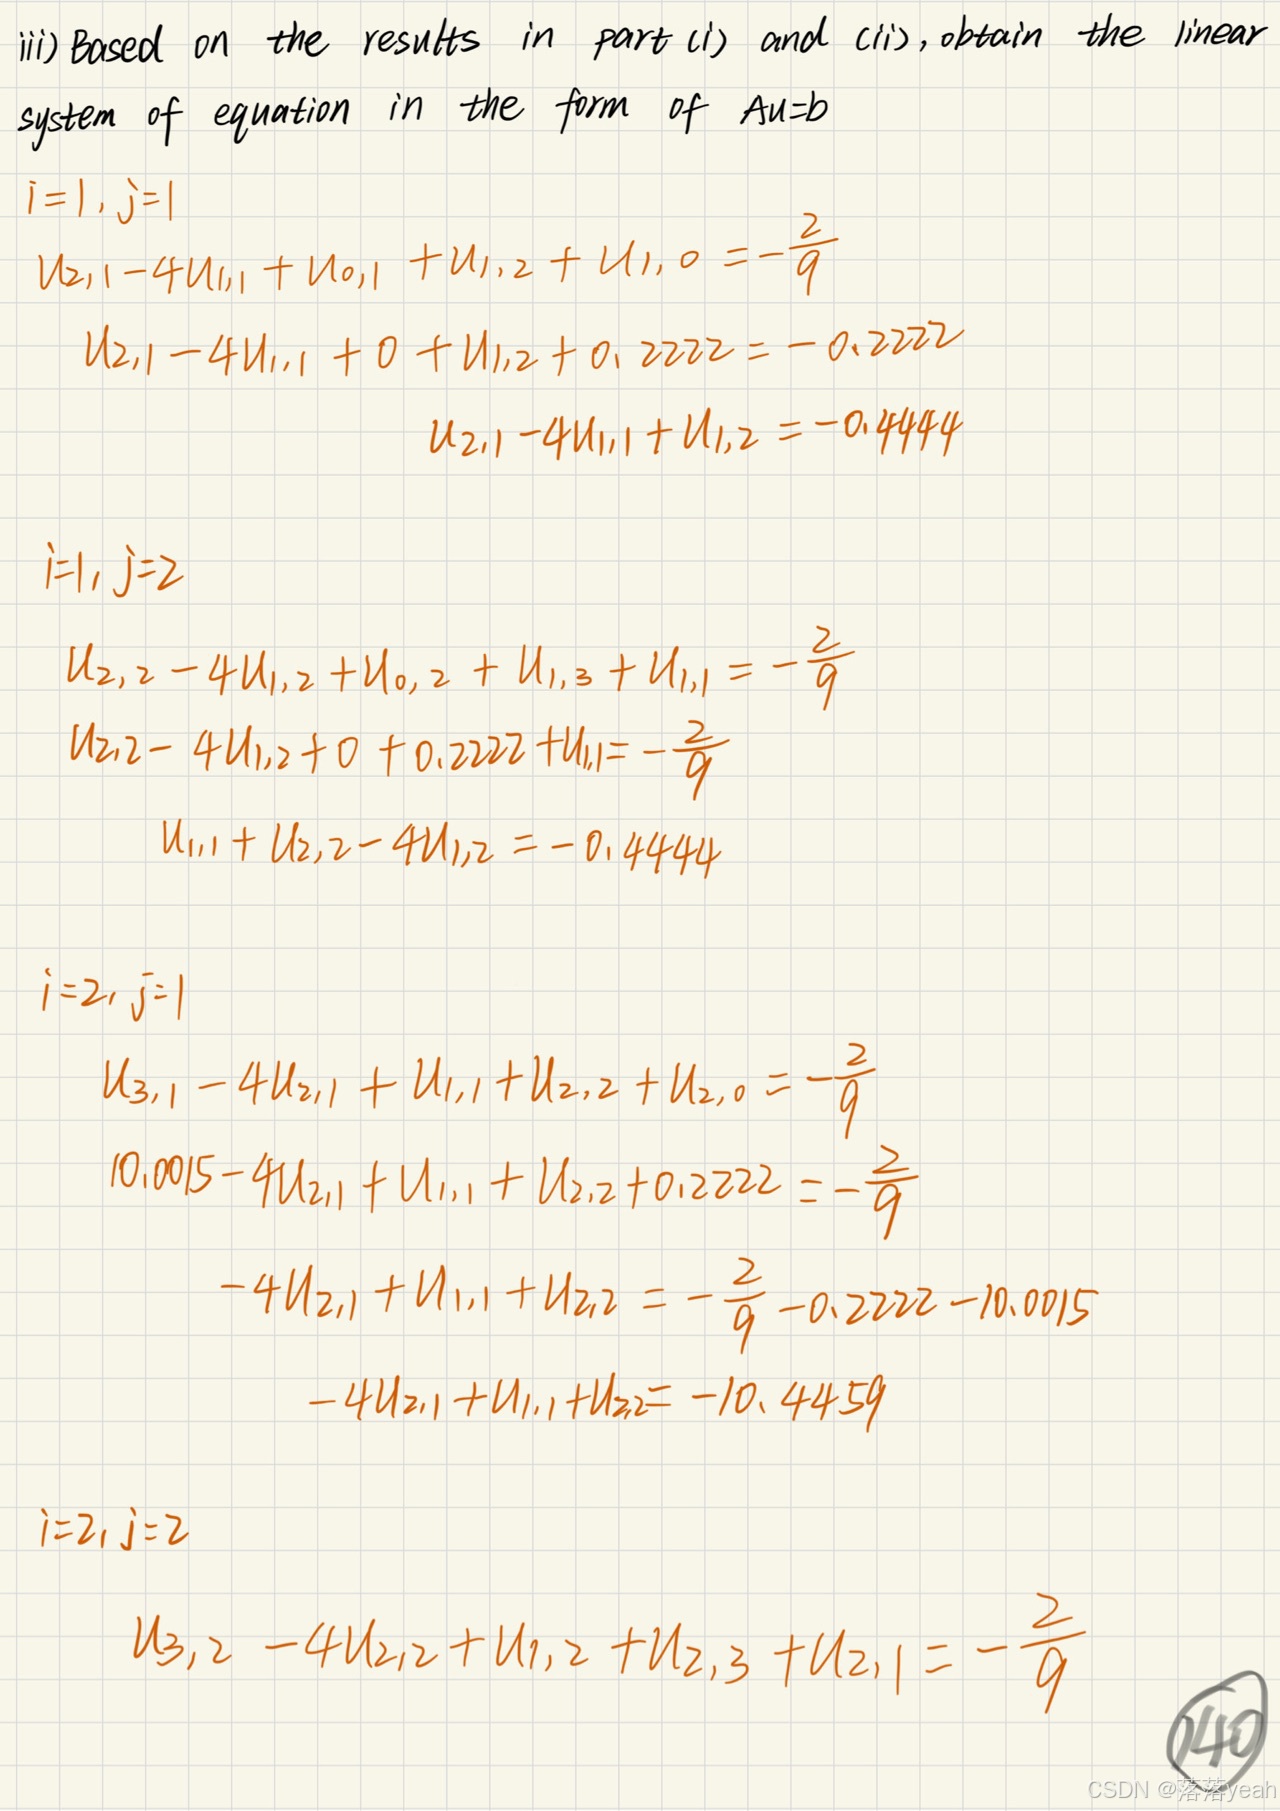 iii) Based on the results in part (i) and (ii), obtain the linear
system of equation in the form of Au=b
i=1, j=1
u₂,₁-4u₁,₁+u₀,₁+u₁,₂+u₁,₀=-2/9
u₂,₁-4u₁,₁+0+u₁,₂+0.2222=-0.2222
u₂,₁-4u₁,₁+u₁,₂=-0.4444
i=1, j=2
u₂,₂-4u₁,₂+u₀,₂+u₁,₃+u₁,₁=-2/9
u₂,₂-4u₁,₂+0+0.2222+u₁,₁=-2/9
u₁,₁+u₂,₂-4u₁,₂=-0.4444
i=2, j=1
u₃,₁-4u₂,₁+u₁,₁+u₂,₂+u₂,₀=-2/9
10.0015-4u₂,₁+u₁,₁+u₂,₂+0.2222=-2/9
-4u₂,₁+u₁,₁+u₂,₂=-2/9-0.2222-10.0015
-4u₂,₁+u₁,₁+u₂,₂=-10.4459
i=2, j=2
u₃,₂-4u₂,₂+u₁,₂+u₂,₃+u₂,₁=-2/9
140
CSDN @落落yeah